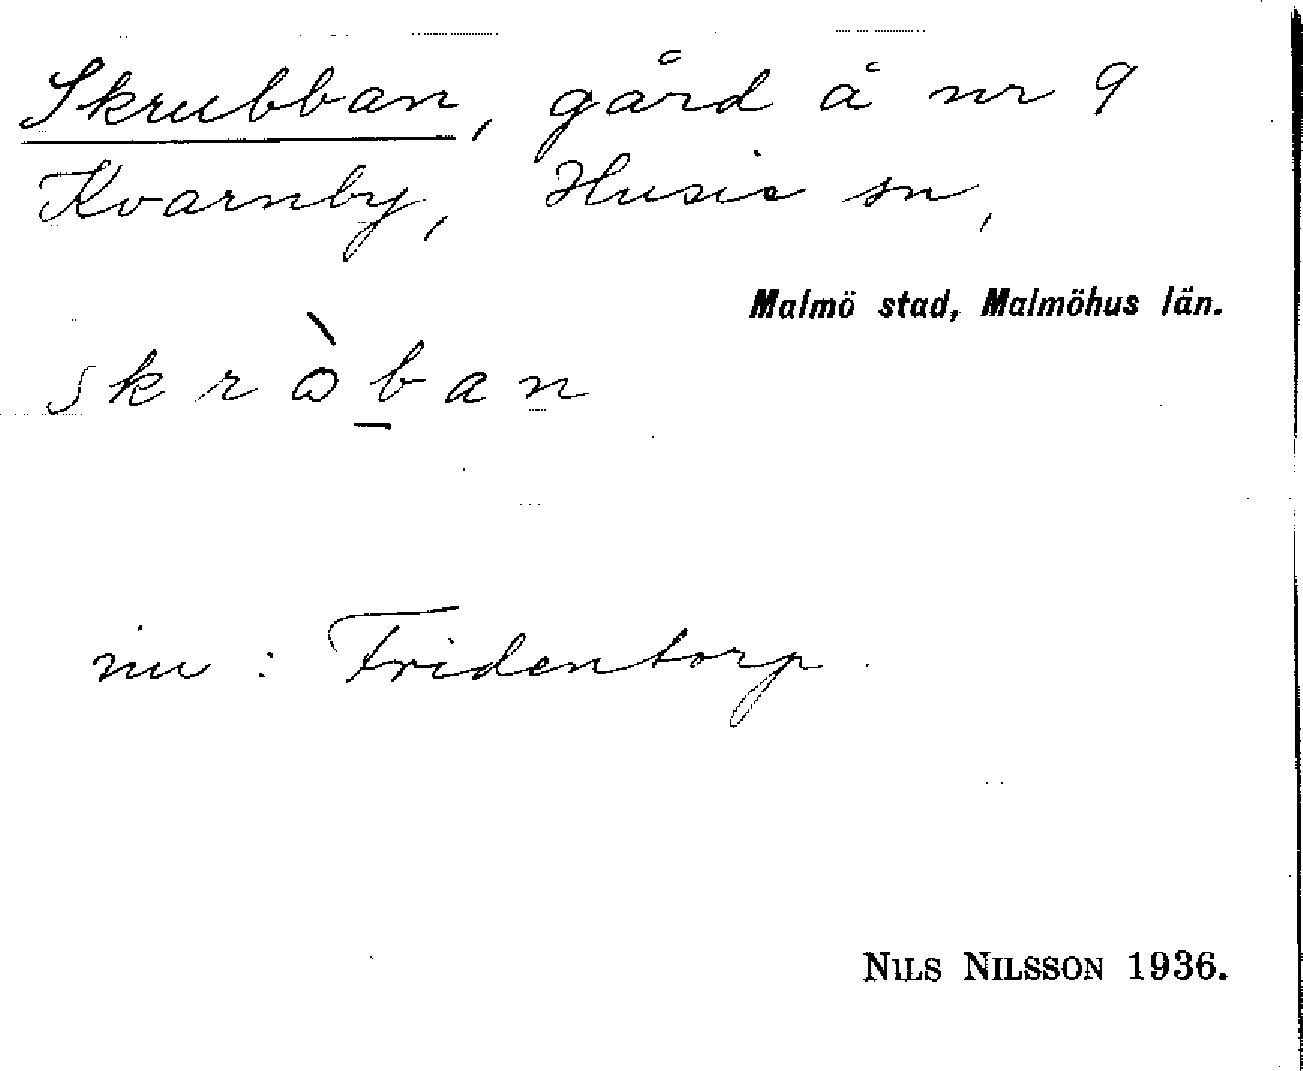 Skrubban, gård å nr 9
Kvarnby, Husie sn,
Malmö stad, Malmöhus län.
skròb̲an
nu : Fridentorp.
NILS NILSSON 1936.